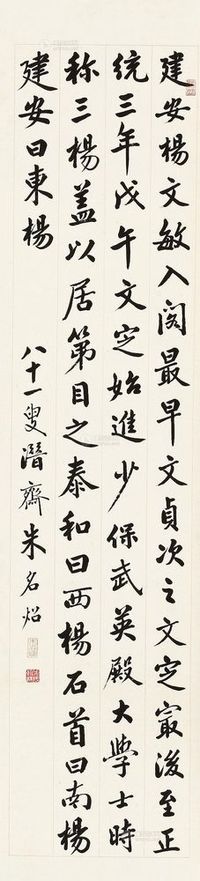 建安楊文敏入閣最早文貞次之文定最後至正
統三年戊午文定始進少保武英殿大學士時
称三楊蓋以居第目之泰和曰西楊石首曰南楊
建安曰東楊
八十一叟潛齋朱名炤